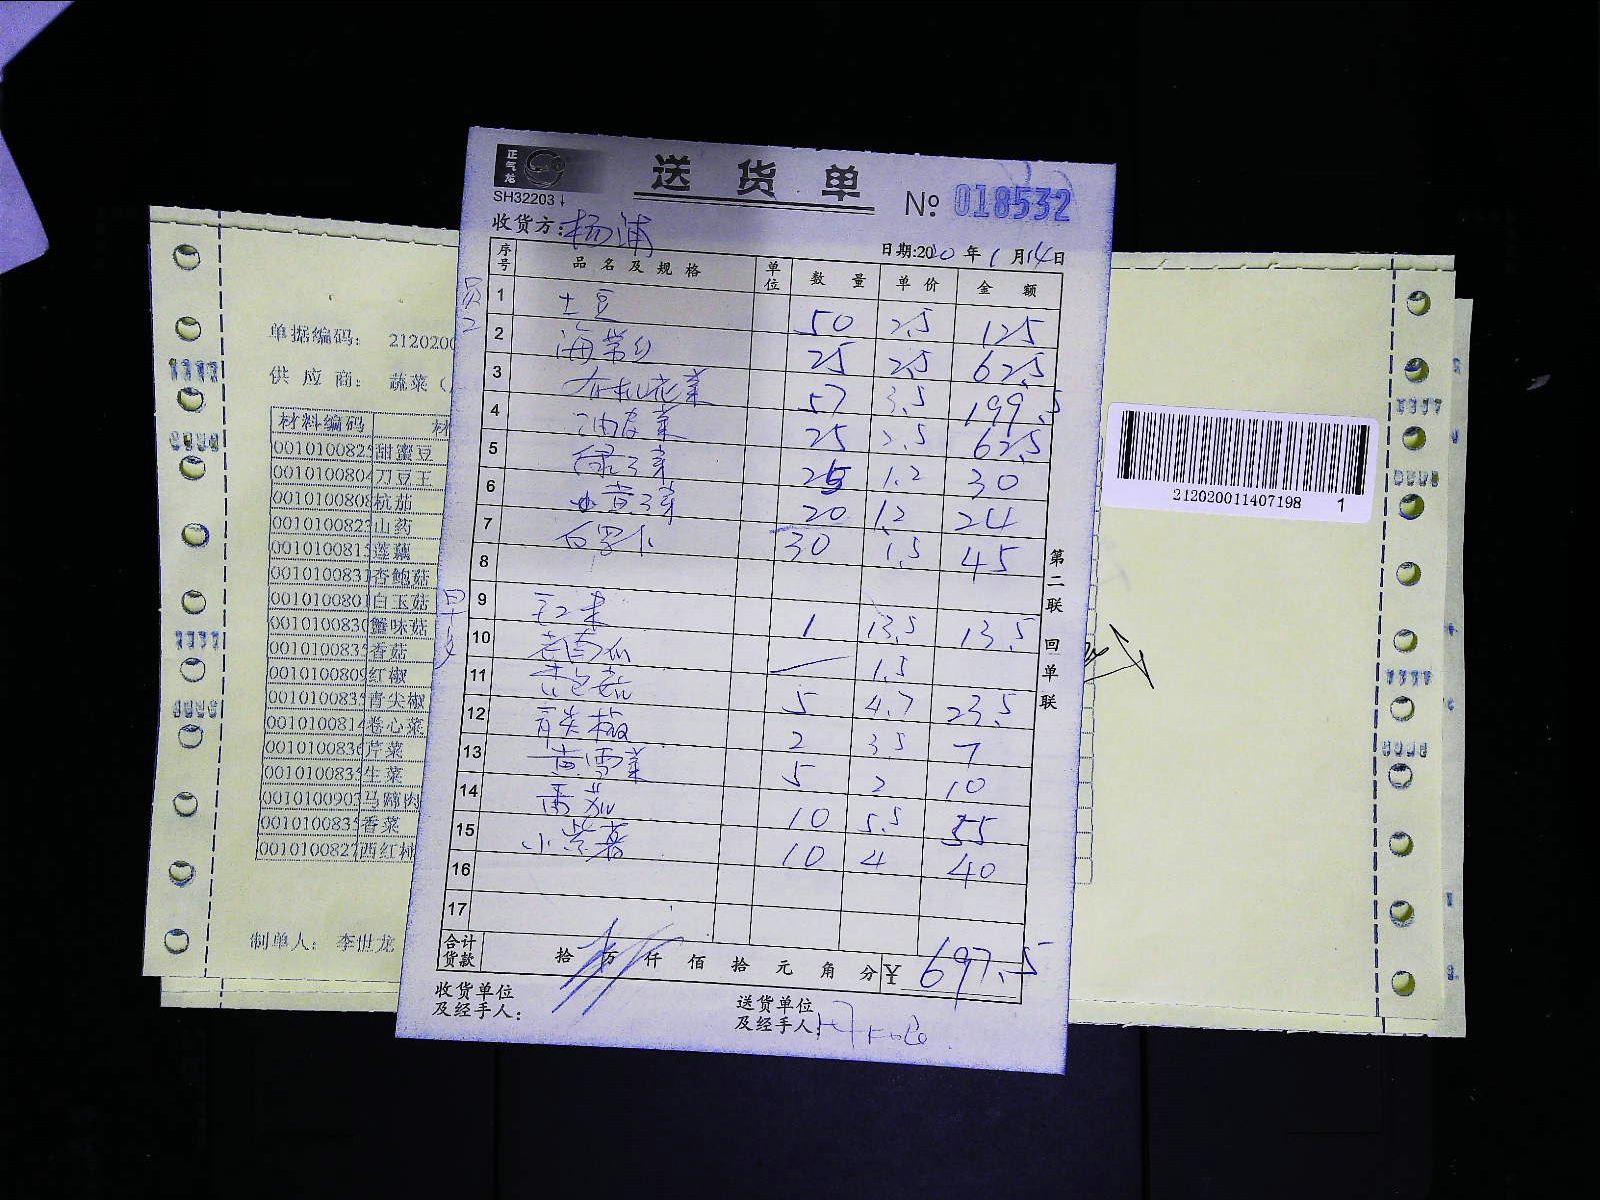 正气龙
SH32203
送货单
№ 018532
收货方:杨浦
日期:2020年1月14日
序号 品名及规格 单位 数量 单价 金额
员工
1 土豆 50 2.5 125
2 海带丝 25 2.5 62.5
3 有机花菜 57 3.5 199.5
4 油麦菜 25 2.5 62.5
5 绿豆芽 25 1.2 30
6 黄豆芽 20 1.2 24
7 白萝卜 30 1.5 45
8
9 1 13.5 13.5
10 老南瓜 1.5
11 5 4.7 23.5
12 青尖椒 2 3.5 7
13 5 2 10
14 番茄 10 5.5 55
15 小紫薯 10 4 40
16
17
合计货款 拾 万 仟 佰 拾 元 角 分 ¥ 697.5
收货单位及经手人:
送货单位及经手人:
第二联 回单联
单据编码: 2120200
供应商: 蔬菜(
材料编码 材
001010082 甜蜜豆
0010100804 刀豆王
0010100808 杭茄
001010082 山药
001010081 莲藕
001010083 杏鲍菇
001010080 白玉菇
001010083 蟹味菇
001010083 香菇
0010100809 红椒
001010083 青尖椒
0010100814 卷心菜
001010083 芹菜
001010083 生菜
001010090 马蹄肉
001010083 香菜
001010082 西红柿
制单人: 李世龙
212020011407198 1